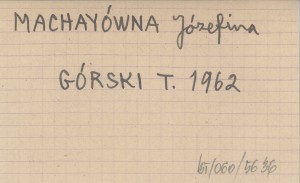 MACHAYÓWNA Józefina
GÓRSKI T. 1962
61/060/5636